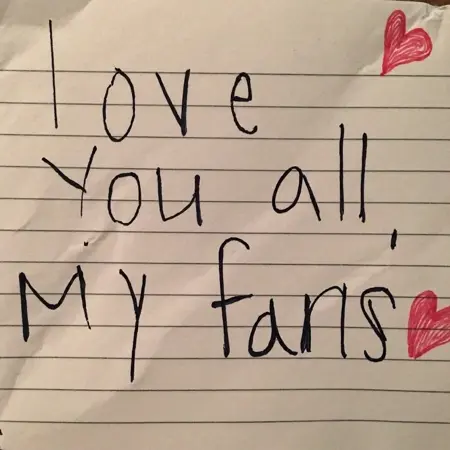 love
You all,
My fans